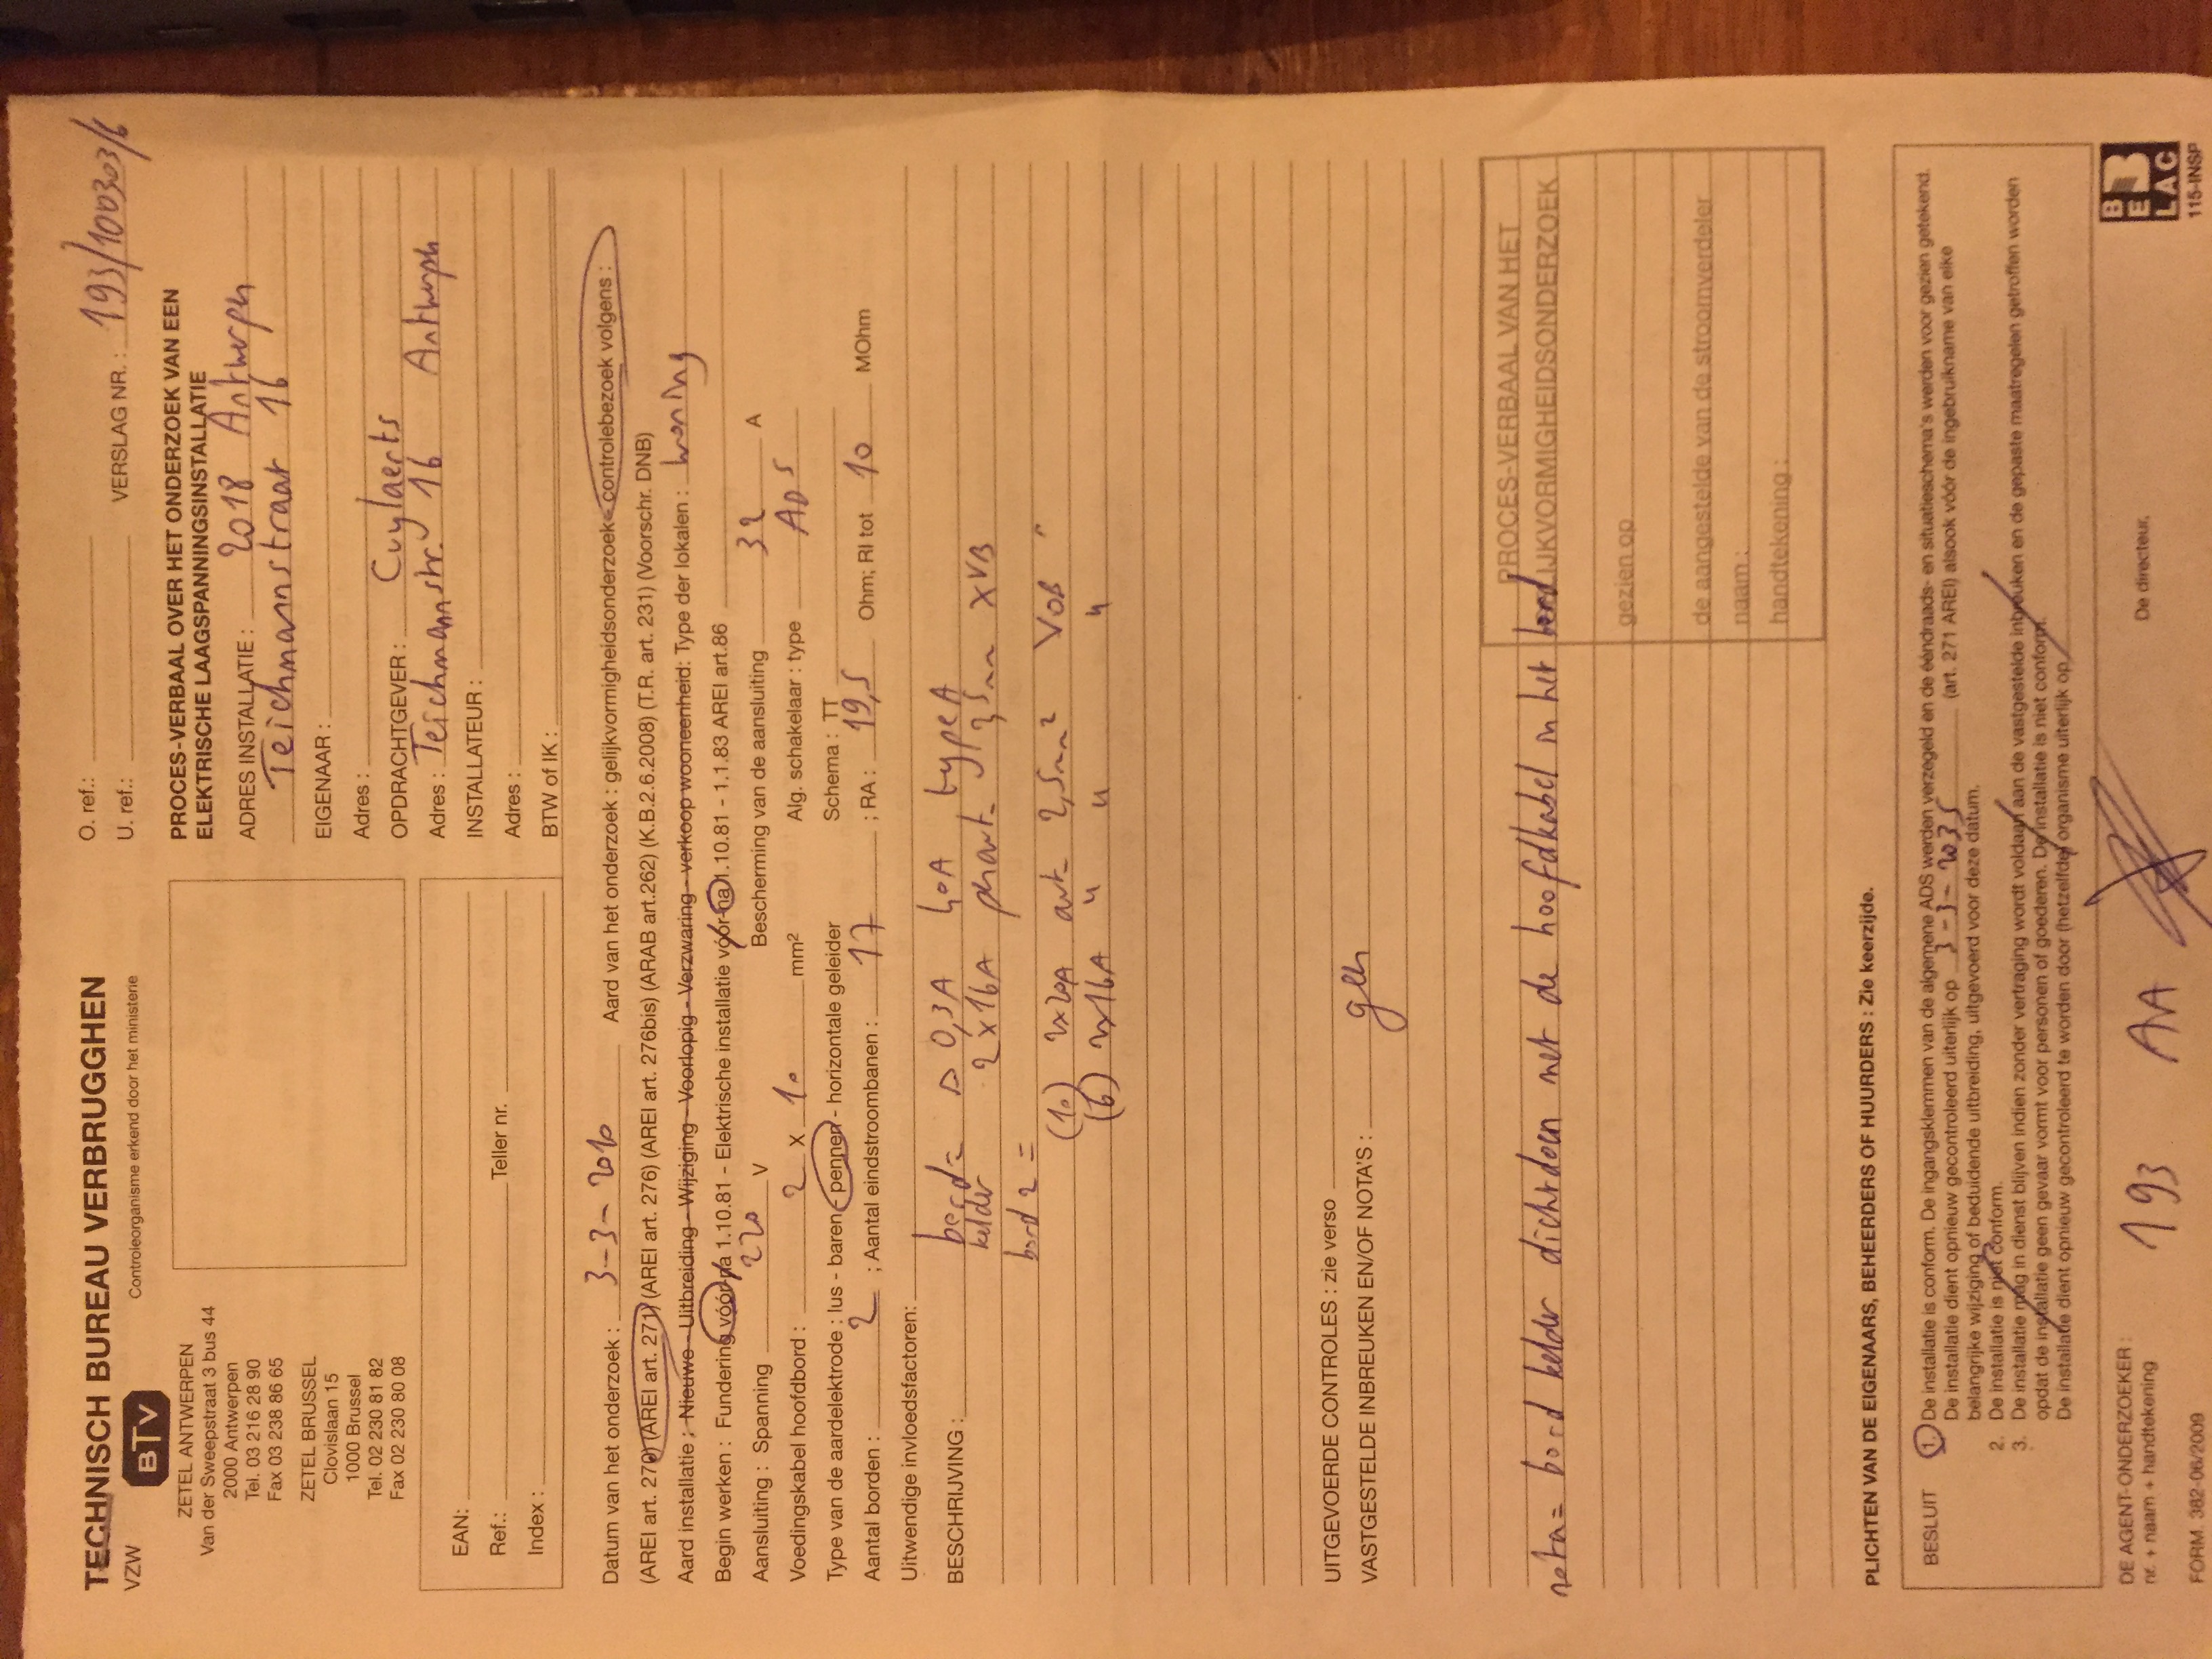 TECHNISCH BUREAU VERBRUGGHEN
VZW
BTV
Controleorganisme erkend door het ministerie
ZETEL ANTWERPEN
Van der Sweepstraat 3 bus 44
2000 Antwerpen
Tel. 03 216 28 90
Fax 03 238 86 65
ZETEL BRUSSEL
Clovislaan 15
1000 Brussel
Tel. 02 230 81 82
Fax 02 230 80 08
EAN:
Ref.: Teller nr.
Index :
O. ref.:
U. ref.: VERSLAG NR. : 193/100303/6
PROCES-VERBAAL OVER HET ONDERZOEK VAN EEN
ELEKTRISCHE LAAGSPANNINGSINSTALLATIE
ADRES INSTALLATIE : 2018 Antwerpen
Teichmannstraat 16
EIGENAAR :
Adres :
OPDRACHTGEVER : Cuylaerts
Adres : Teichmannstr. 16 Antwerpen
INSTALLATEUR :
Adres :
BTW of IK :
Datum van het onderzoek : 3-3-2010 Aard van het onderzoek : gelijkvormigheidsonderzoek - controlebezoek volgens :
(AREI art. 270) (AREI art. 271) (AREI art. 276) (AREI art. 276bis) (ARAB art.262) (K.B.2.6.2008) (T.R. art. 231) (Voorschr. DNB)
Aard installatie : Nieuwe - Uitbreiding - Wijziging - Voorlopig - Verzwaring - verkoop wooneenheid: Type der lokalen : woning
Begin werken : Fundering vóór-na 1.10.81 - Elektrische installatie vóór-na 1.10.81 - 1.1.83 AREI art.86
Aansluiting : Spanning 220 V Bescherming van de aansluiting 32 A
Voedingskabel hoofdbord : 2 x 10 mm² Alg. schakelaar : type ADS
Type van de aardelektrode : lus - baren - pennen - horizontale geleider Schema : TT
Aantal borden : 2 ; Aantal eindstroombanen : 17 ; RA : 19,5 Ohm; RI tot 10 MOhm
Uitwendige invloedsfactoren:
BESCHRIJVING :
bord = Δ 0,3A 40A type A
kelder 2 x 16A 2,5mm XVB
bord 2 =
(10) 2x20A aut 2,5mm² VOB "
(6) 2x16A " " "
UITGEVOERDE CONTROLES : zie verso
VASTGESTELDE INBREUKEN EN/OF NOTA'S : geen
PROCES-VERBAAL VAN HET
GELIJKVORMIGHEIDSONDERZOEK
gezien op
de aangestelde van de stroomverdeler
naam :
handtekening :
nota = bord kelder dichtdoen met de hoofdkabel in het bord
PLICHTEN VAN DE EIGENAARS, BEHEERDERS OF HUURDERS : Zie keerzijde.
BESLUIT 1. De installatie is conform. De ingangsklemmen van de algemene ADS werden verzegeld en de ééndraads- en situatieschema's werden voor gezien getekend.
De installatie dient opnieuw gecontroleerd uiterlijk op 3-3-2035 (art. 271 AREI) alsook vóór de ingebruikname van elke
belangrijke wijziging of beduidende uitbreiding, uitgevoerd voor deze datum.
2. De installatie is niet conform.
3. De installatie mag in dienst blijven indien zonder vertraging wordt voldaan aan de vastgestelde inbreuken en de gepaste maatregelen getroffen worden
opdat de installatie geen gevaar vormt voor personen of goederen. De installatie is niet conform.
De installatie dient opnieuw gecontroleerd te worden door (hetzelfde) organisme uiterlijk op
DE AGENT-ONDERZOEKER :
nr. + naam + handtekening
193 AA
De directeur,
BELAC
115-INSP
FORM. 382-06/2009